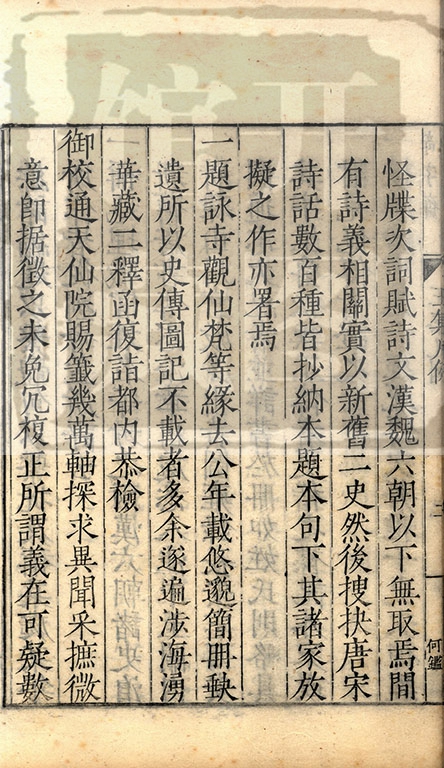 怪牒次詞賦詩文漢魏六朝以下無取焉間
有詩義相關實以新舊二史然後搜抉唐宋
詩話數百種皆抄納本題本句下其諸家放
擬之作亦署焉
一題詠寺觀仙梵等緣去公年載悠邈簡冊缺
遺所以史傳圖記不載者多余遂遍涉海湧
華藏二釋函復詣都內恭檢
御校通天仙院賜籖幾萬軸探求異聞采摭微
意即据徵之未免冗複正所謂義在可疑數
何鑑